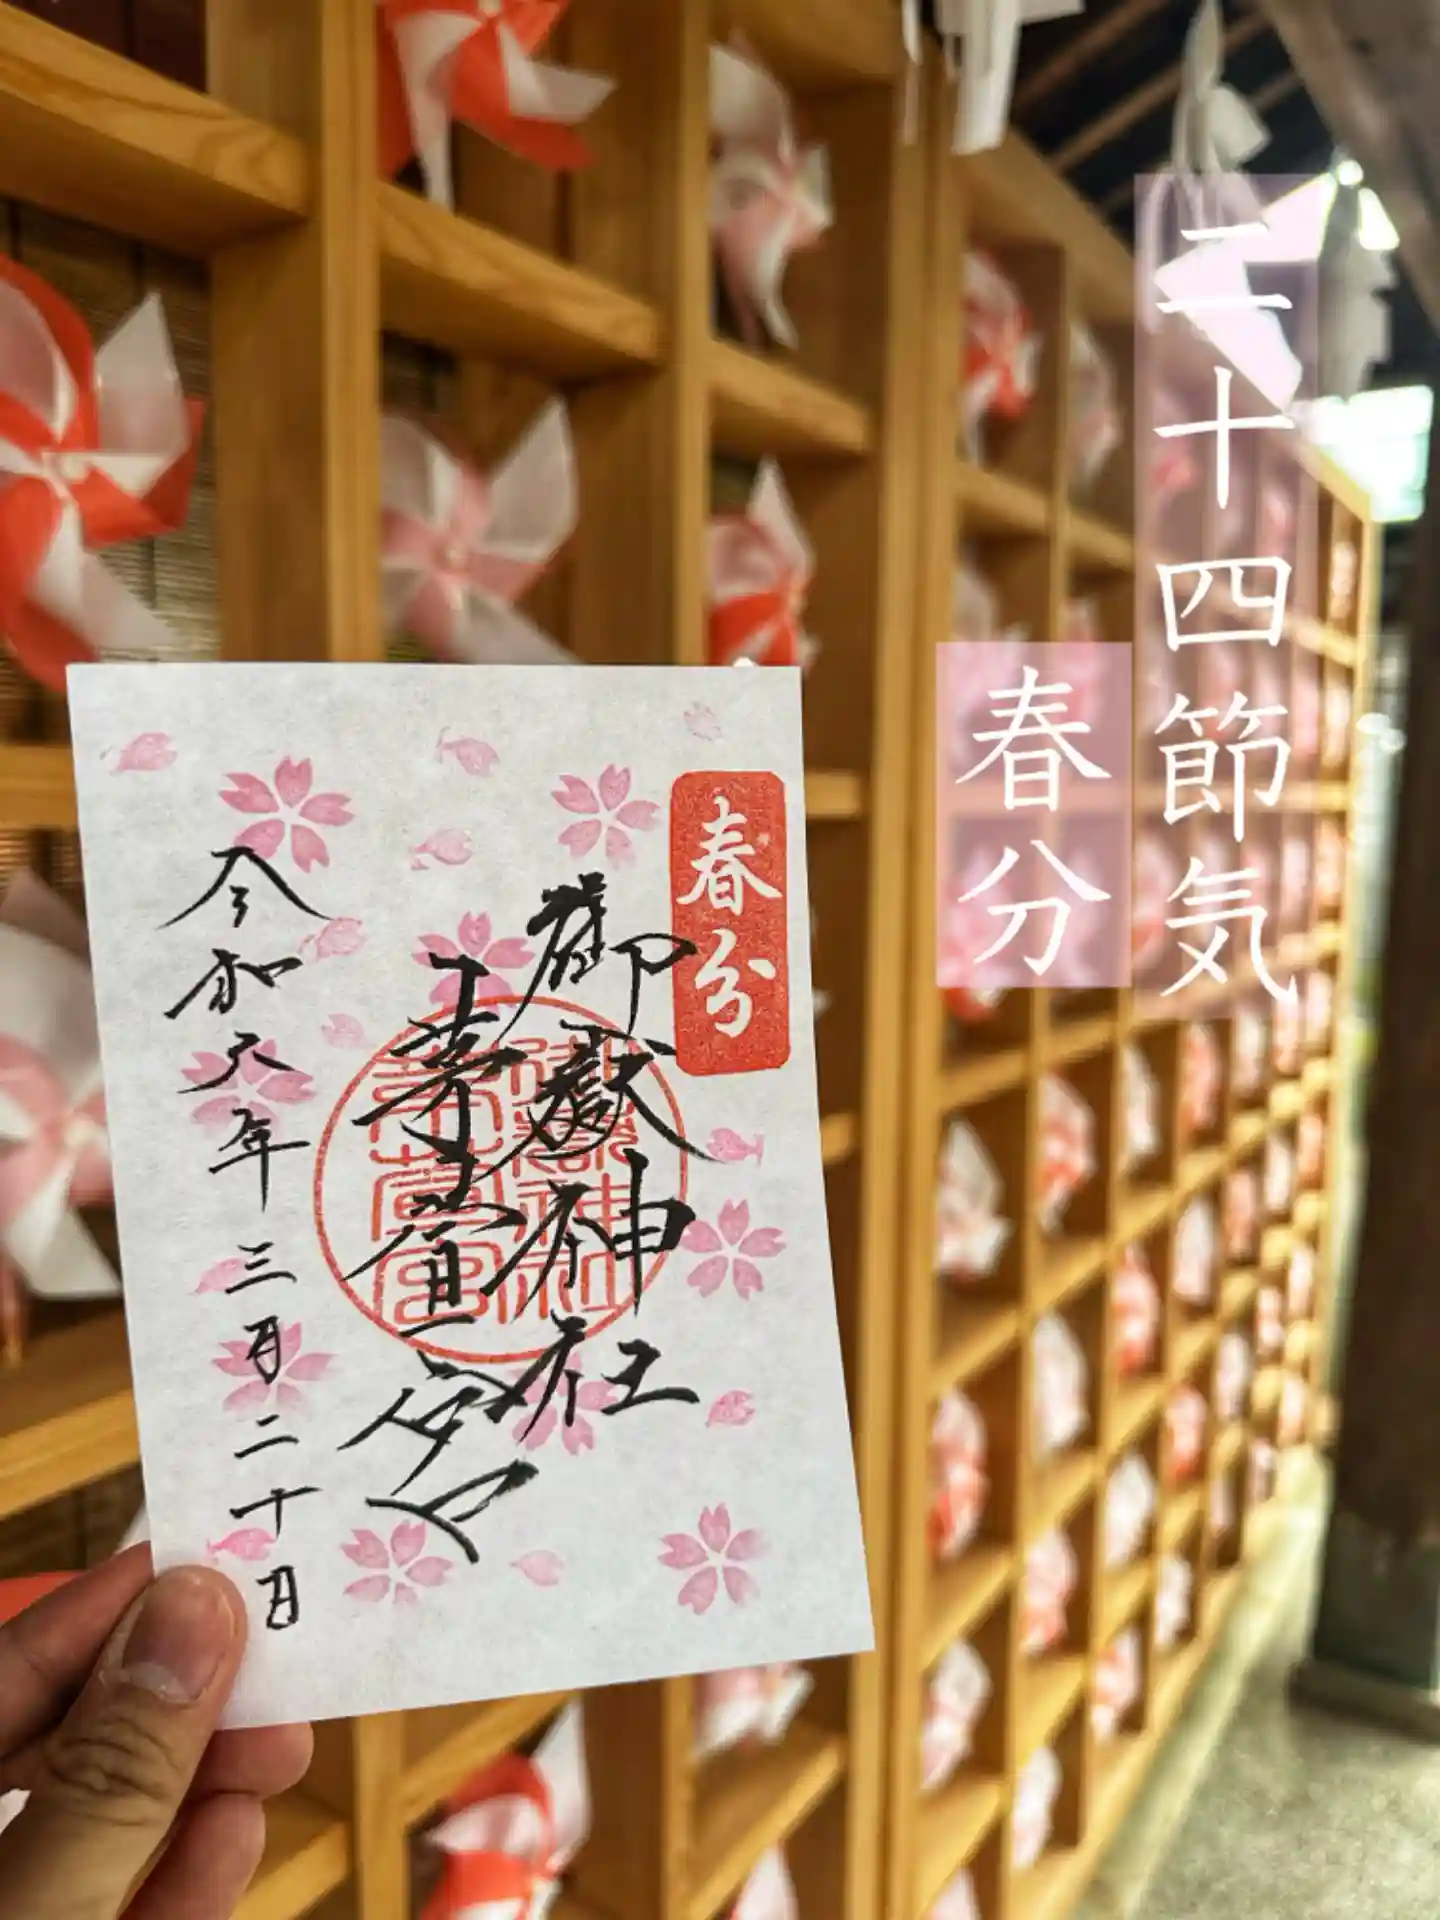 二十四節気
春分
春分
御嶽神社
茅萱宮
令和六年三月二十日